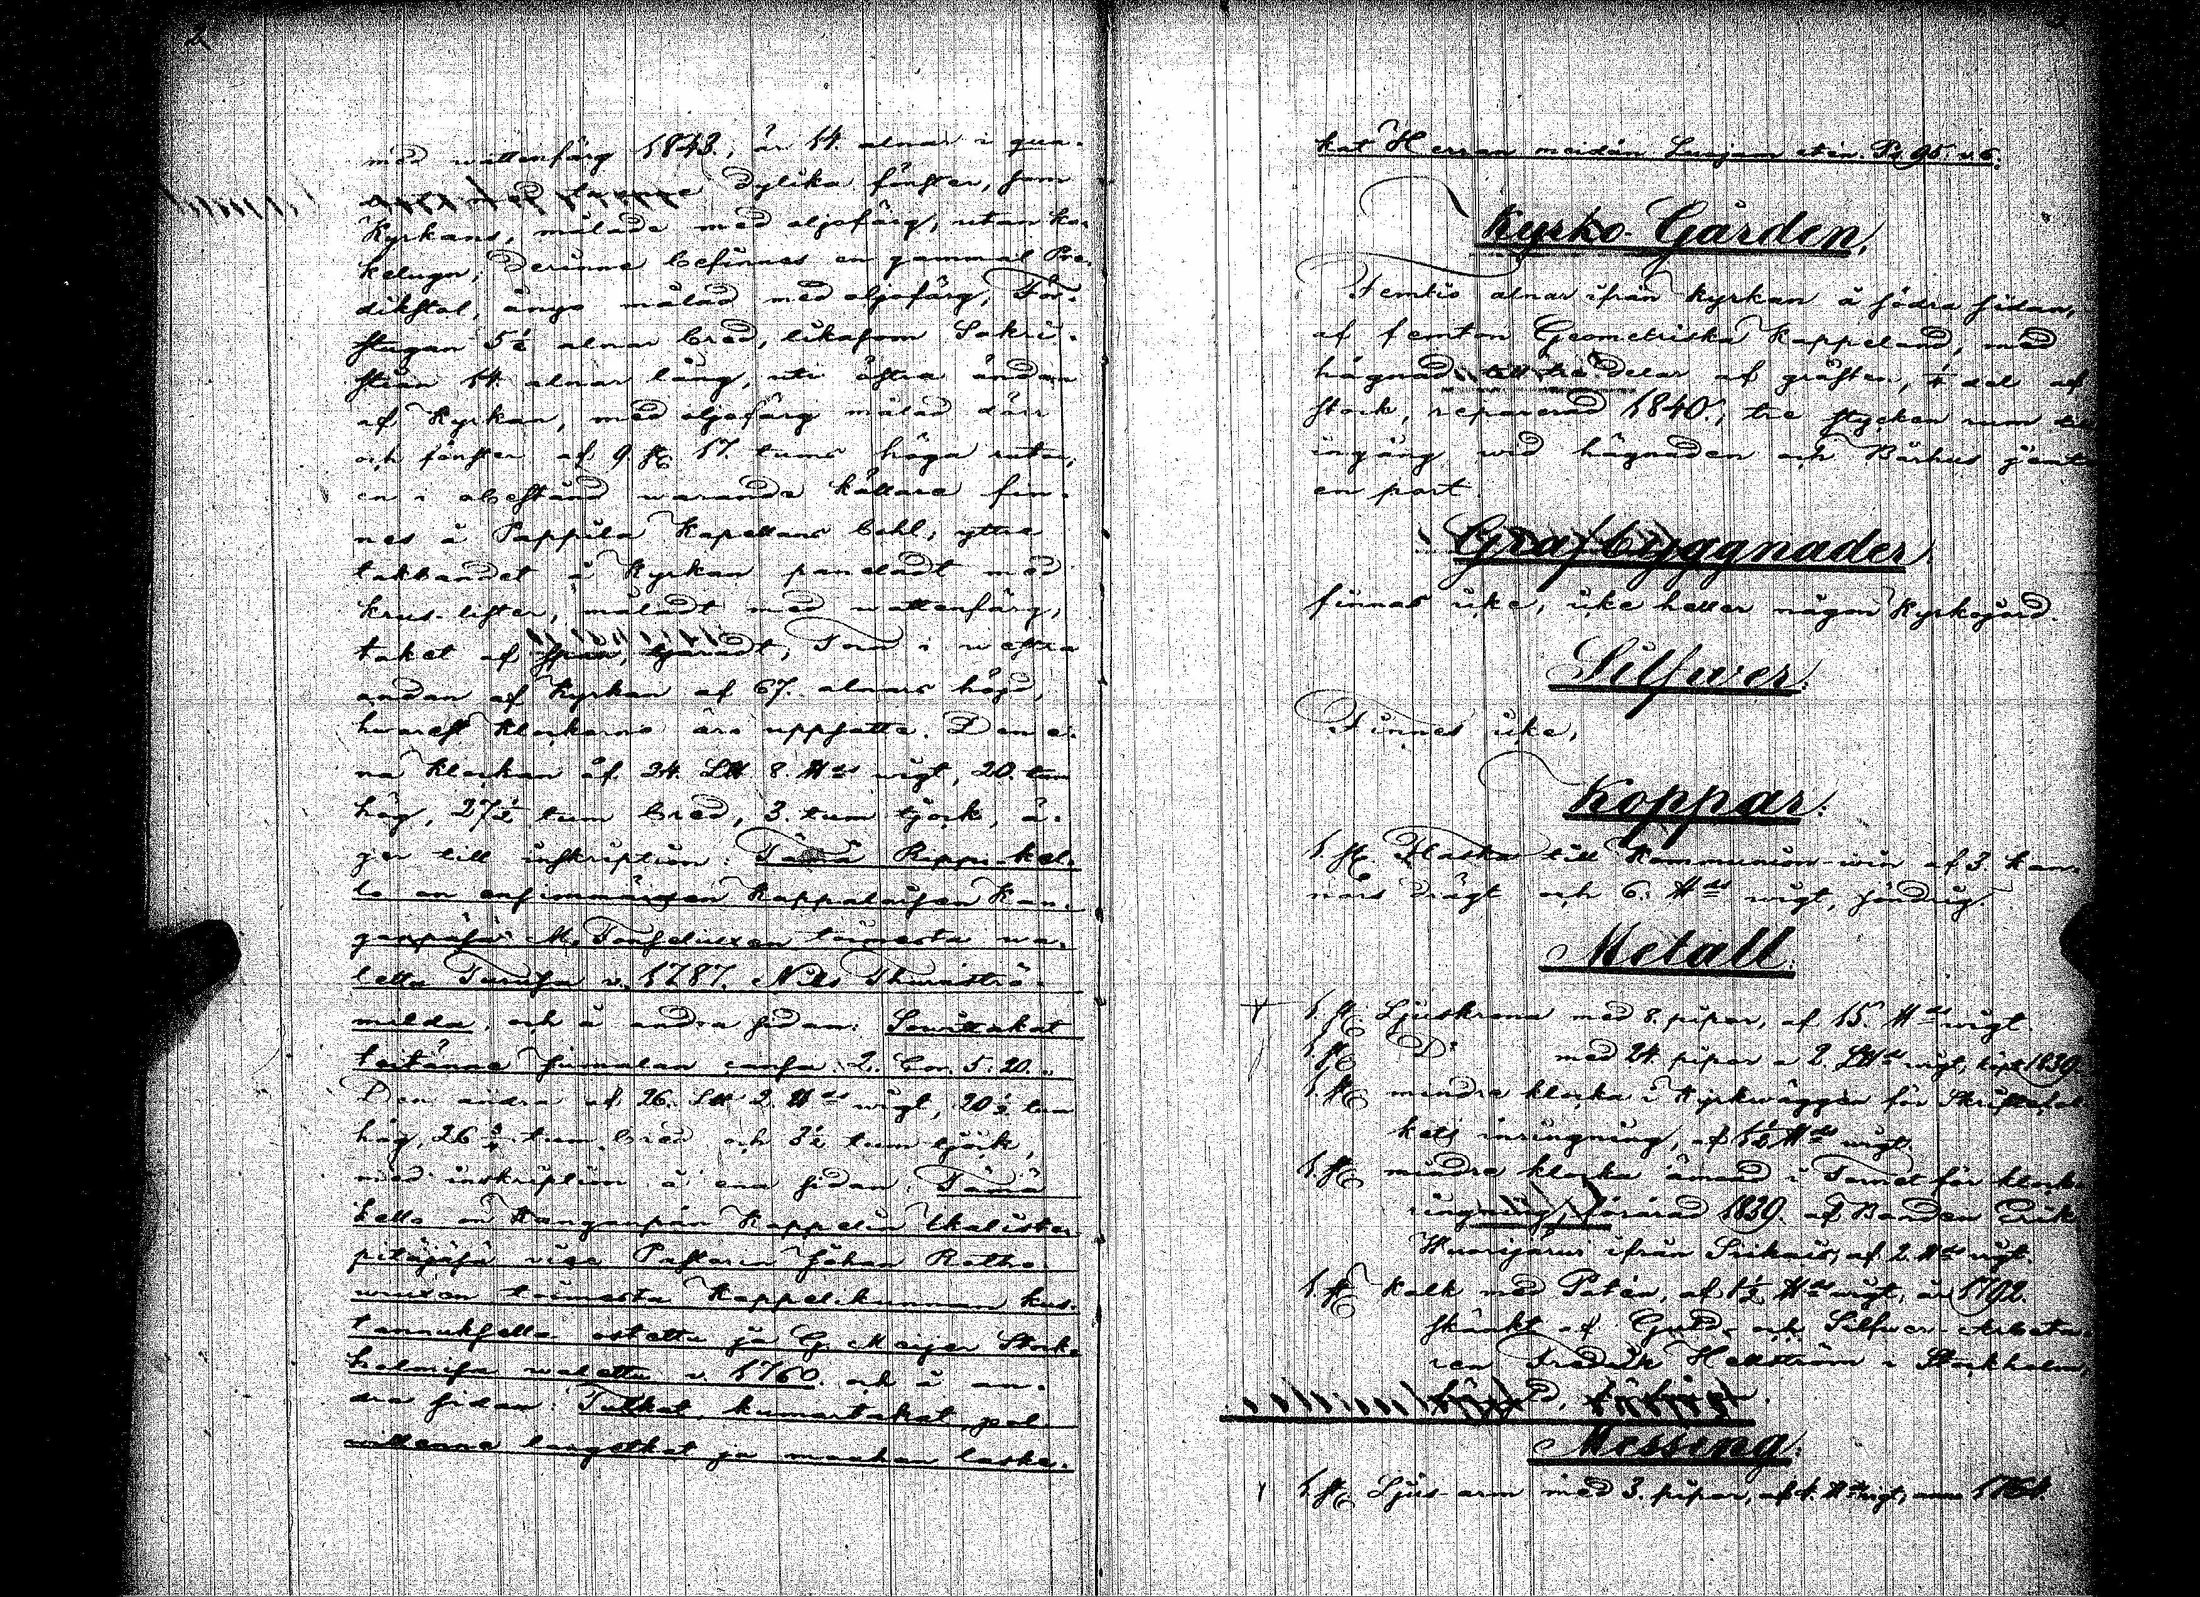 2
med wattenfärg 1843, är 14 alnar i qua-
dylika fönster, som
Kyrkans, målade med oljofärg, utan ka-
kelugn; Derinne befinnes en gammal Pre-
dikstol, ängo målad med oljofärg, För-
stugan 5½ alnar bred, likasom Sakri-
stian 14 alnar lång, uti östra ändan
af Kyrkan, med oljofärg målad dörr
och fönster af 9 st. 17 tums höga rutor,
en i obestånd warande källare fin-
nes å Pappila Kapellans bohl, yttre
takbandet å Kyrkan paneladt med
krus-lister, måladt med wattenfärg,
taket af spån, tjäradt, Torn i westra
ändan af Kyrkan af 67 alnars höjd,
hwarest Klockorna äro uppsatte. Den e-
na klockan af 24 L℔ 8 ℔ds wigt, 20 tum
hög, 27½ tum bred, 3 tum tjock, ä-
ger till inskription: Tämä Rippi-kel-
lo on ensimmäisen Kappalaisen Kan-
M. Tonseliuxen toimesta wa-
lettu Turusa v. 1787. Nils Thunströ-
milda, och å andra sidan: Sowittakat
teitänne Jumalan cansa. 2. Cor. 5: 20.
Den andra af 26 L℔ 2 ℔ds wigt, 20½ tum
hög, 26¾ tum bred och 3½ tum tjock,
med inskription å ena sidan: Tämä
kello on Kangaspän Kappelin
Pastorin Johan
toimesta Kappelikunnan kus-
tannuksella ostettu ja G. Meijer Stock-
holmisa walettu v. 1760. och å an-
dra sidan: Tulkat, kumartakat, pol-
willenne langetkat ja maahan laske-
kat Herran meidän Luojam eteen. Ps. 95. v. 6.
Kyrko-Gården,
Femtio alnar ifrån Kyrkan å södra sidan,
af femton Geometriska Kappeland, med
hägnad till tre delar af gråsten, ¼ del af
stock, reparerad 1840; tre stycken rum
ingång wid hägnaden och Bårhus jemte
en port.
Grafbyggnader
finnas icke, icke heller någon Kyrkogård.
Silfwer.
Finnes icke,
Koppar.
1 st. Flaska till Kommunion-win af 3 kan-
nors drägt och 6 ℔ds wigt, söndrig
Metall.
1 st. Ljuskrona med 8 pipor, af 15 ℔ds wigt.
1 st. Do med 24 pipor a 2 L℔ds wigt, köpt 1839.
1 st. mindre klocka i Kyrkwäggen för Skriftefol-
kets inringning, af 1½ ℔ds wigt.
1 st. mindre klocka ämnad i Tornet för klock-
ringning, förärad 1839 af Bonden Erik
ifrån af 2 ℔ds wigt.
1 st. Kalk med Patén, af 1½ ℔ds wigt, år 1792.
skänkt af Guld- och Silfwer-Arbeta-
ren Fredrik Hellström i Stockholm,
Messing.
1 st. Ljus-arm med 3 pipor, af 4 ℔ds wigt, anno 1764.